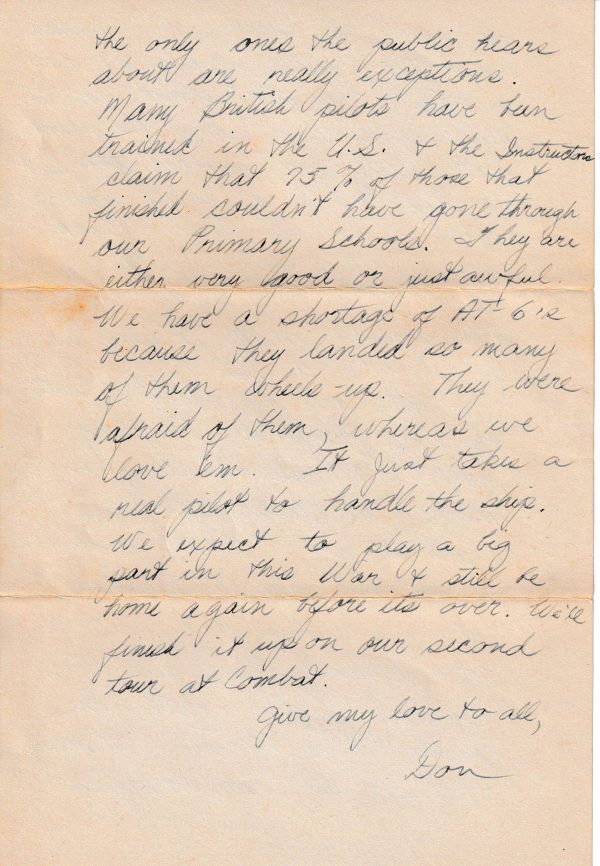 the only ones the public hears
about are really exceptions.
Many British pilots have been
trained in the U.S. & the Instructors
claim that 75% of those that
finished couldn't have gone through
our Primary Schools. They are
either very good or just awful.
We have a shortage of AT-6's
because they landed so many
of them wheels-up. They were
afraid of them, whereas we
love 'em. It just takes a
real pilot to handle the ship.
We expect to play a big
part in this War & still be
home again before its over. We'll
finish it up on our second
tour at Combat.
Give my love to all,
Don